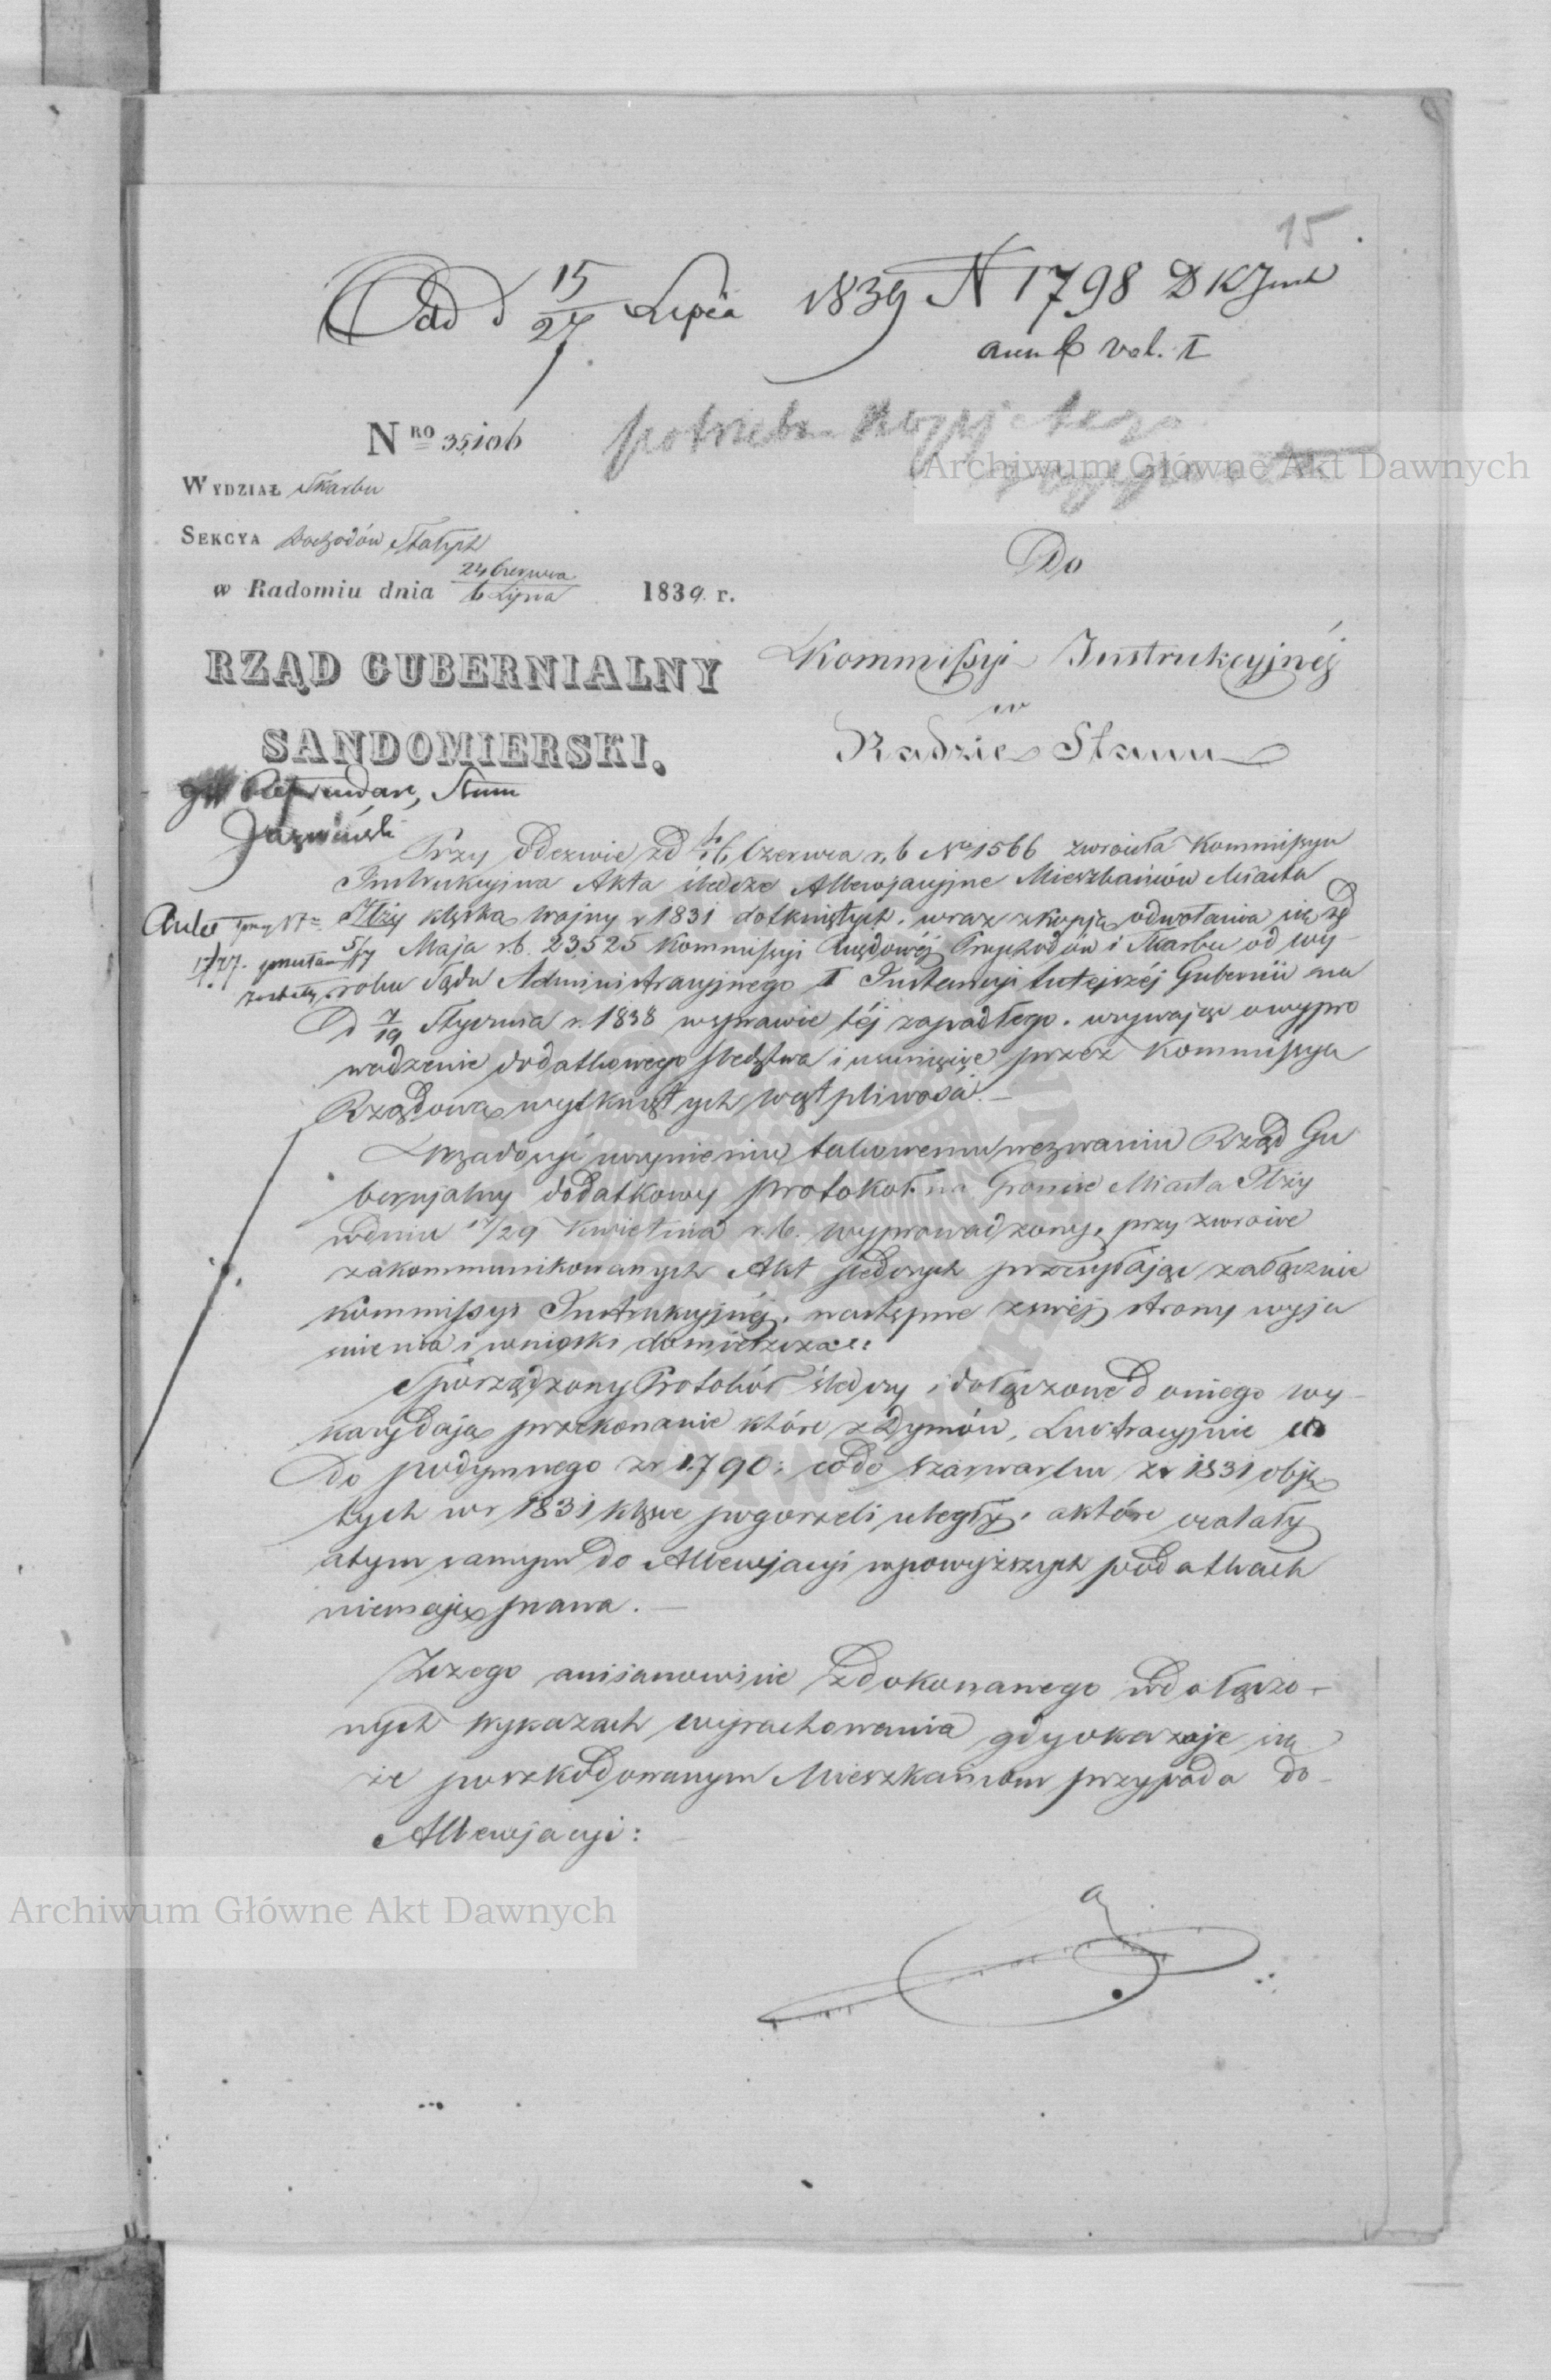 15
Odd d 15/27 Lipca 1839 N 1798 D K Inst
vol. I
NRO 35,106
potrzeba
Archiwum Główne Akt Dawnych
WYDZIAŁ Skarbu
SEKCYA Dochodów Stałych
Do
w Radomiu dnia 24 Czerwca/6 Lipca 1839. r.
RZĄD GUBERNIALNY
Kommissyi Instrukcyjnéj
w
SANDOMIERSKI.
Radzie Stanu
Referendarz Stanu
Przy odezwie zd 4/16 Czerwca r. b No 1566 zwróciła Kommissya
Instrukcyjna Akta śledcze Allewjacyjne Mieszkańców Miasta
Iłży klęską wojny r 1831 dotkniętych, wraz z kopją odwołania się zd
5/17 Maja r.b. 23,525 Kommissyi Rządowéj Przychodów i Skarbu od wy-
roku Sądu Administracyjnego I Instancyi tutejszéj Gubernii na
D 7/19 Stycznia r. 1838 w sprawie téj zapadłego, wzywając o wypro
wadzenie dodatkowego śledztwa i usunięcie przez Kommissyą
Rządową wytkniętych wątpliwości.—
uczynieniu takowemu wezwaniu Rząd Gu
bernjalny dodatkowy protokół na Gruncie Miasta Iłży
w dniu 17/29 Kwietnia r. b. wyprowadzony, przy zwrocie
zakommunikowanych Akt śledczych przesyłając załącznie
Kommissyi Instrukcyjnéj, następne z swéj strony wyja
śnienia i wnioski domieszcza:
Sporządzony Protokół śledczy i dołączone do niego wy-
kazy dają przekonanie które z Dymów, Lustracyjnie co
do podymnego z r 1790; co do szarwarku z r 1831 obję
tych w r 1831 klęsce pogorzeli uległy, a które ocalały
a tym samym do Allewjacyi w powyższych podatkach
nie mają prawa.—
Z czego a mianowicie z dokonanego w dołączo-
nych wykazach wyrachowania gdy okazuje się
że poszkodowanym Mieszkańcom przypada do
Allewjacyi:
Archiwum Główne Akt Dawnych